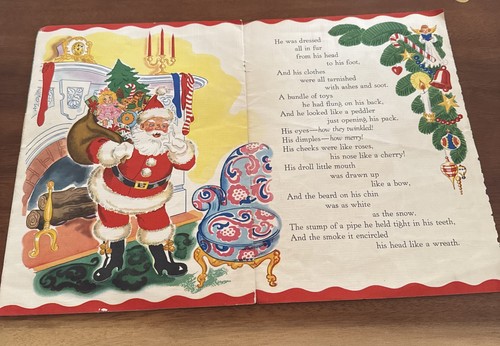 He was dressed
all in fur
from his head
to his foot,
And his clothes
were all tarnished
with ashes and soot.
A bundle of toys
he had flung on his back,
And he looked like a peddler
just opening his pack.
His eyes—how they twinkled!
His dimples—how merry!
His cheeks were like roses,
his nose like a cherry!
His droll little mouth
was drawn up
like a bow,
And the beard on his chin
was as white
as the snow,
The stump of a pipe he held tight in his teeth,
And the smoke it encircled
his head like a wreath.